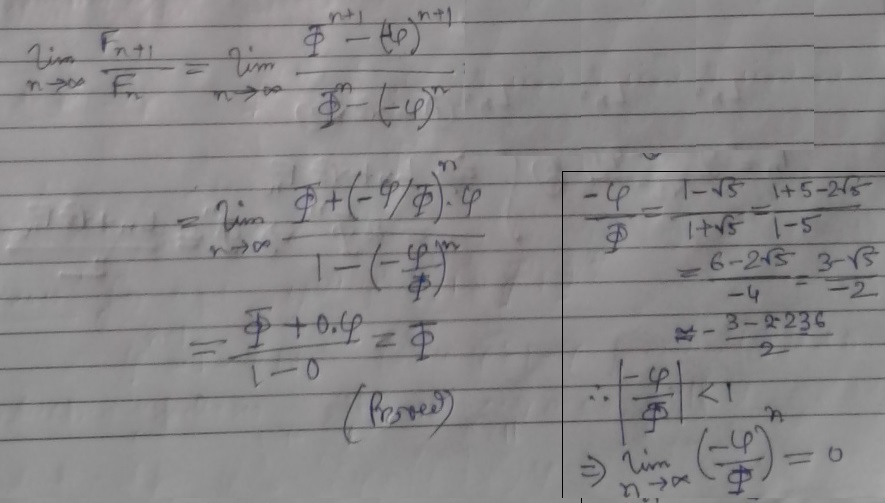 lim n→∞ F_{n+1}/F_n = lim n→∞ (Φ^{n+1} − (-φ)^{n+1}) / (Φ^n − (−φ)^n)
= lim n→∞ (Φ + (−φ/Φ)^n · φ) / (1 − (−φ/Φ)^n)
= (Φ + 0.φ) / (1 − 0) = Φ
(Proved)
−φ/Φ = (1−√5)/(1+√5) = (1+5−2√5)/(1−5)
= (6−2√5)/(−4) = (3−√5)/(−2)
≈ − (3−2.236)/2
∴ |−φ/Φ| < 1
⇒ lim n→∞ (−φ/Φ)^n = 0